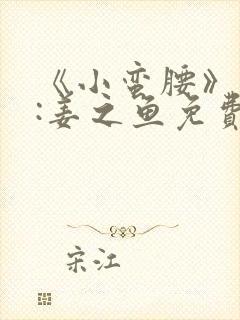 《小蛮腰》
:姜之鱼免費
宋江